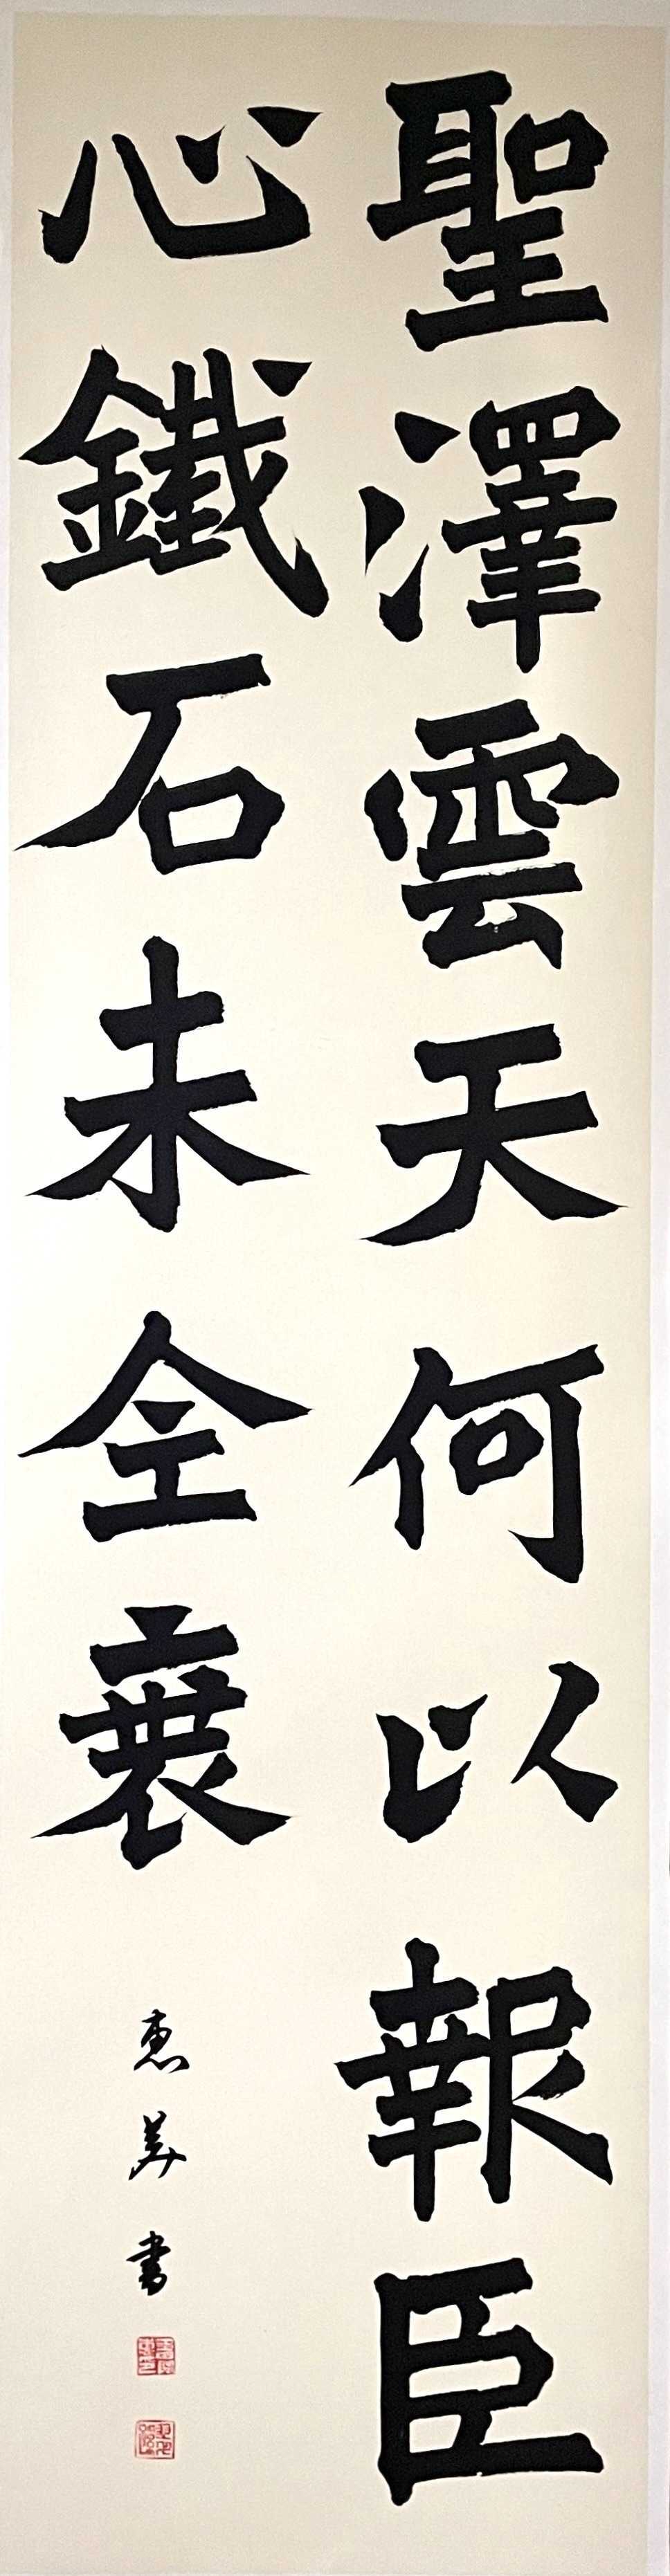 聖澤雲天何以報臣
心鐵石未全衰
恵美書